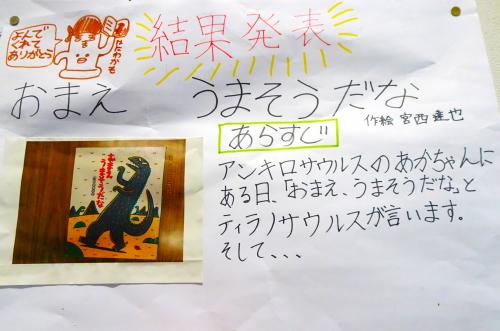 よんで
くれて
ありがとう
結果発表
おまえ うまそうだな
作絵 宮西達也
あらすじ
アンキロサウルスのあかちゃんに
ある日、「おまえ、うまそうだな」と
ティラノサウルスが言います。
そして、、、
おまえ
うまそうだな